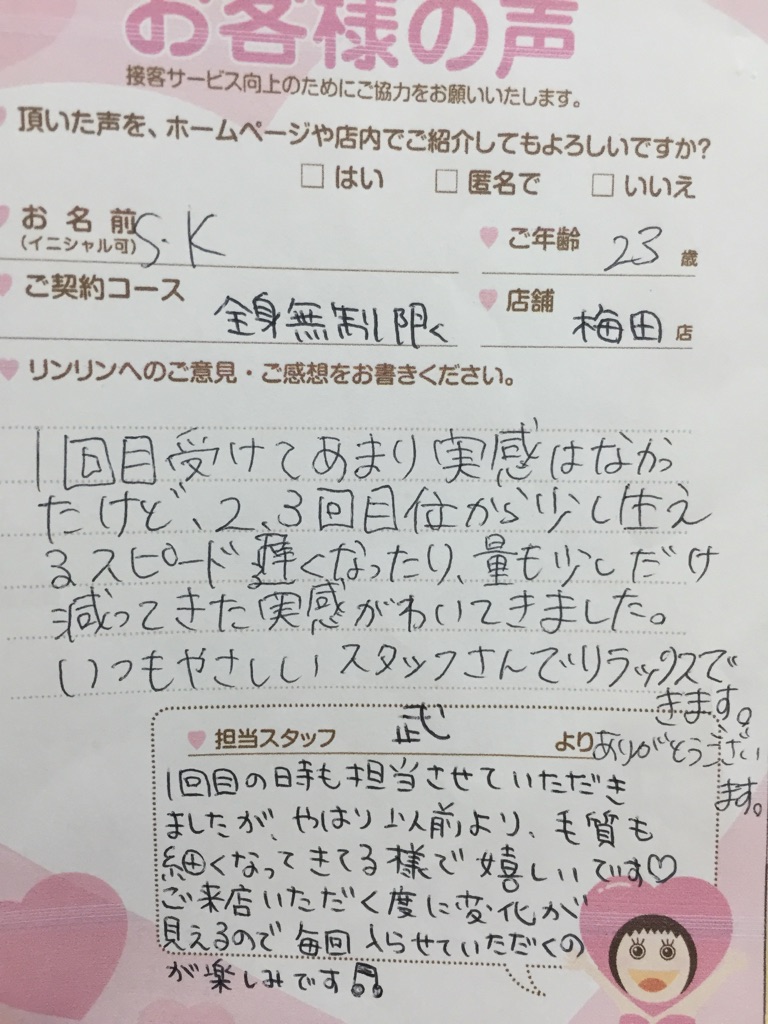 お客様の声
接客サービス向上のためにご協力をお願いいたします。
頂いた声を、ホームページや店内でご紹介してもよろしいですか?
□ はい □ 匿名で □ いいえ
お名前 S.K ご年齢 23 歳
(イニシャル可)
ご契約コース 全身無制限 店舗 梅田 店
リンリンへのご意見・ご感想をお書きください。
1回目受けてあまり実感はなかっ
たけど、2、3回目位から少し生え
るスピード遅くなったり、量も少しだけ
減ってきた実感がわいてきました。
いつもやさしいスタッフさんでリラックスで
きます。
ありがとうござい
ます。
担当スタッフ 武 より
1回目の時も担当させていただき
ましたが、やはり以前より、毛質も
細くなってきてる様で嬉しいです♡
ご来店いただく度に変化が
見えるので毎回入らせていただくの
が楽しみです♫